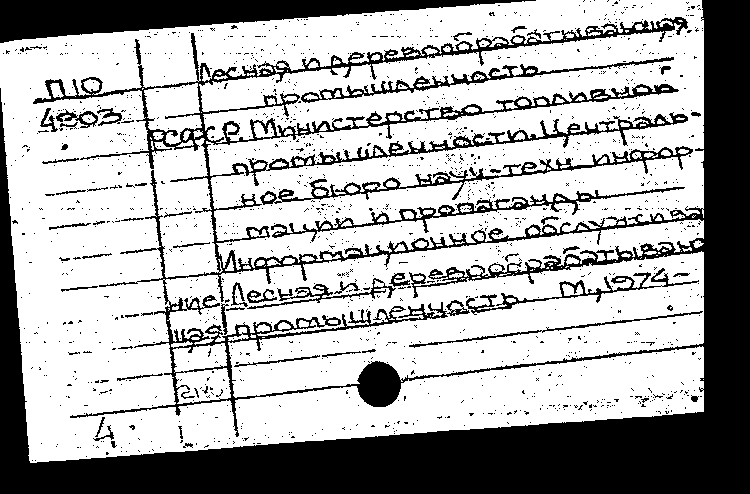 П10
4803
Лесная и деревообрабатывающая
промышленность
РСФСР. Министерство топливной
промышленности. Централь-
ное бюро науч.-техн. инфор-
мации и пропаганды
Информационное обслужива
ние. Лесная и деревообрабатываю
щая промышленность. М., 1974-
4